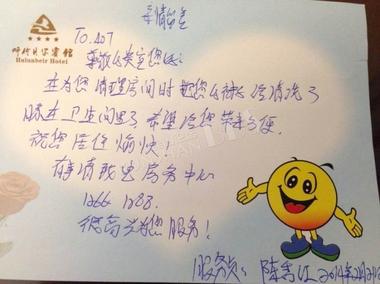 亲情留言
呼伦贝尔宾馆
Hulunbeir Hotel
To.407
尊敬的贵宾您好:
在为您清理房间时把您的袜子给清洗了
晾在卫生间了,希望给您带来方便.
祝您居住愉快!
有事请致电房务中心
1266 1288.
很高兴为您服务!
服务员:陈